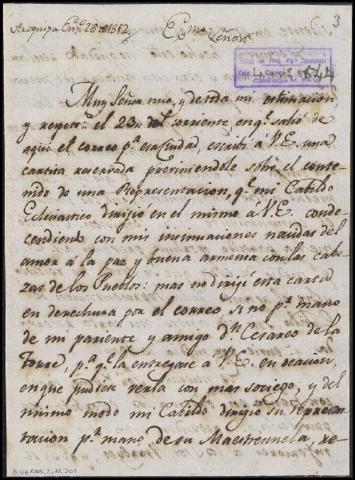 Arequipa En.º 28 de 1812
Ex.mo Señor
3
Muy Señor mio, y de toda mi estimacion
y respeto: el 23 del corriente, en q.e salio de
aqui el correo p.a esa Ciudad, escribi à V.E. una
cartita reservada previniendole sobre el conte-
nido de una Representacion, q.e mi Cabildo
Eclesiastico dirigió en el mismo à V.E. conde-
cendiendo con mis insinuaciones nacidas del
amor a la paz y buena armonia con las cabe-
zas de los Pueblos: mas no dirigi esta carta
en derechura por el correo, si no p.r mano
de mi pariente y amigo d.n Cesareo de la
Torre, p.a q.e la entregase a V.E. en ocacion,
en que pudiese verla con mas sociego; y del
mismo modo mi Cabildo dirigio su represen-
tacion p.r mano de su Maestrescuela, re-